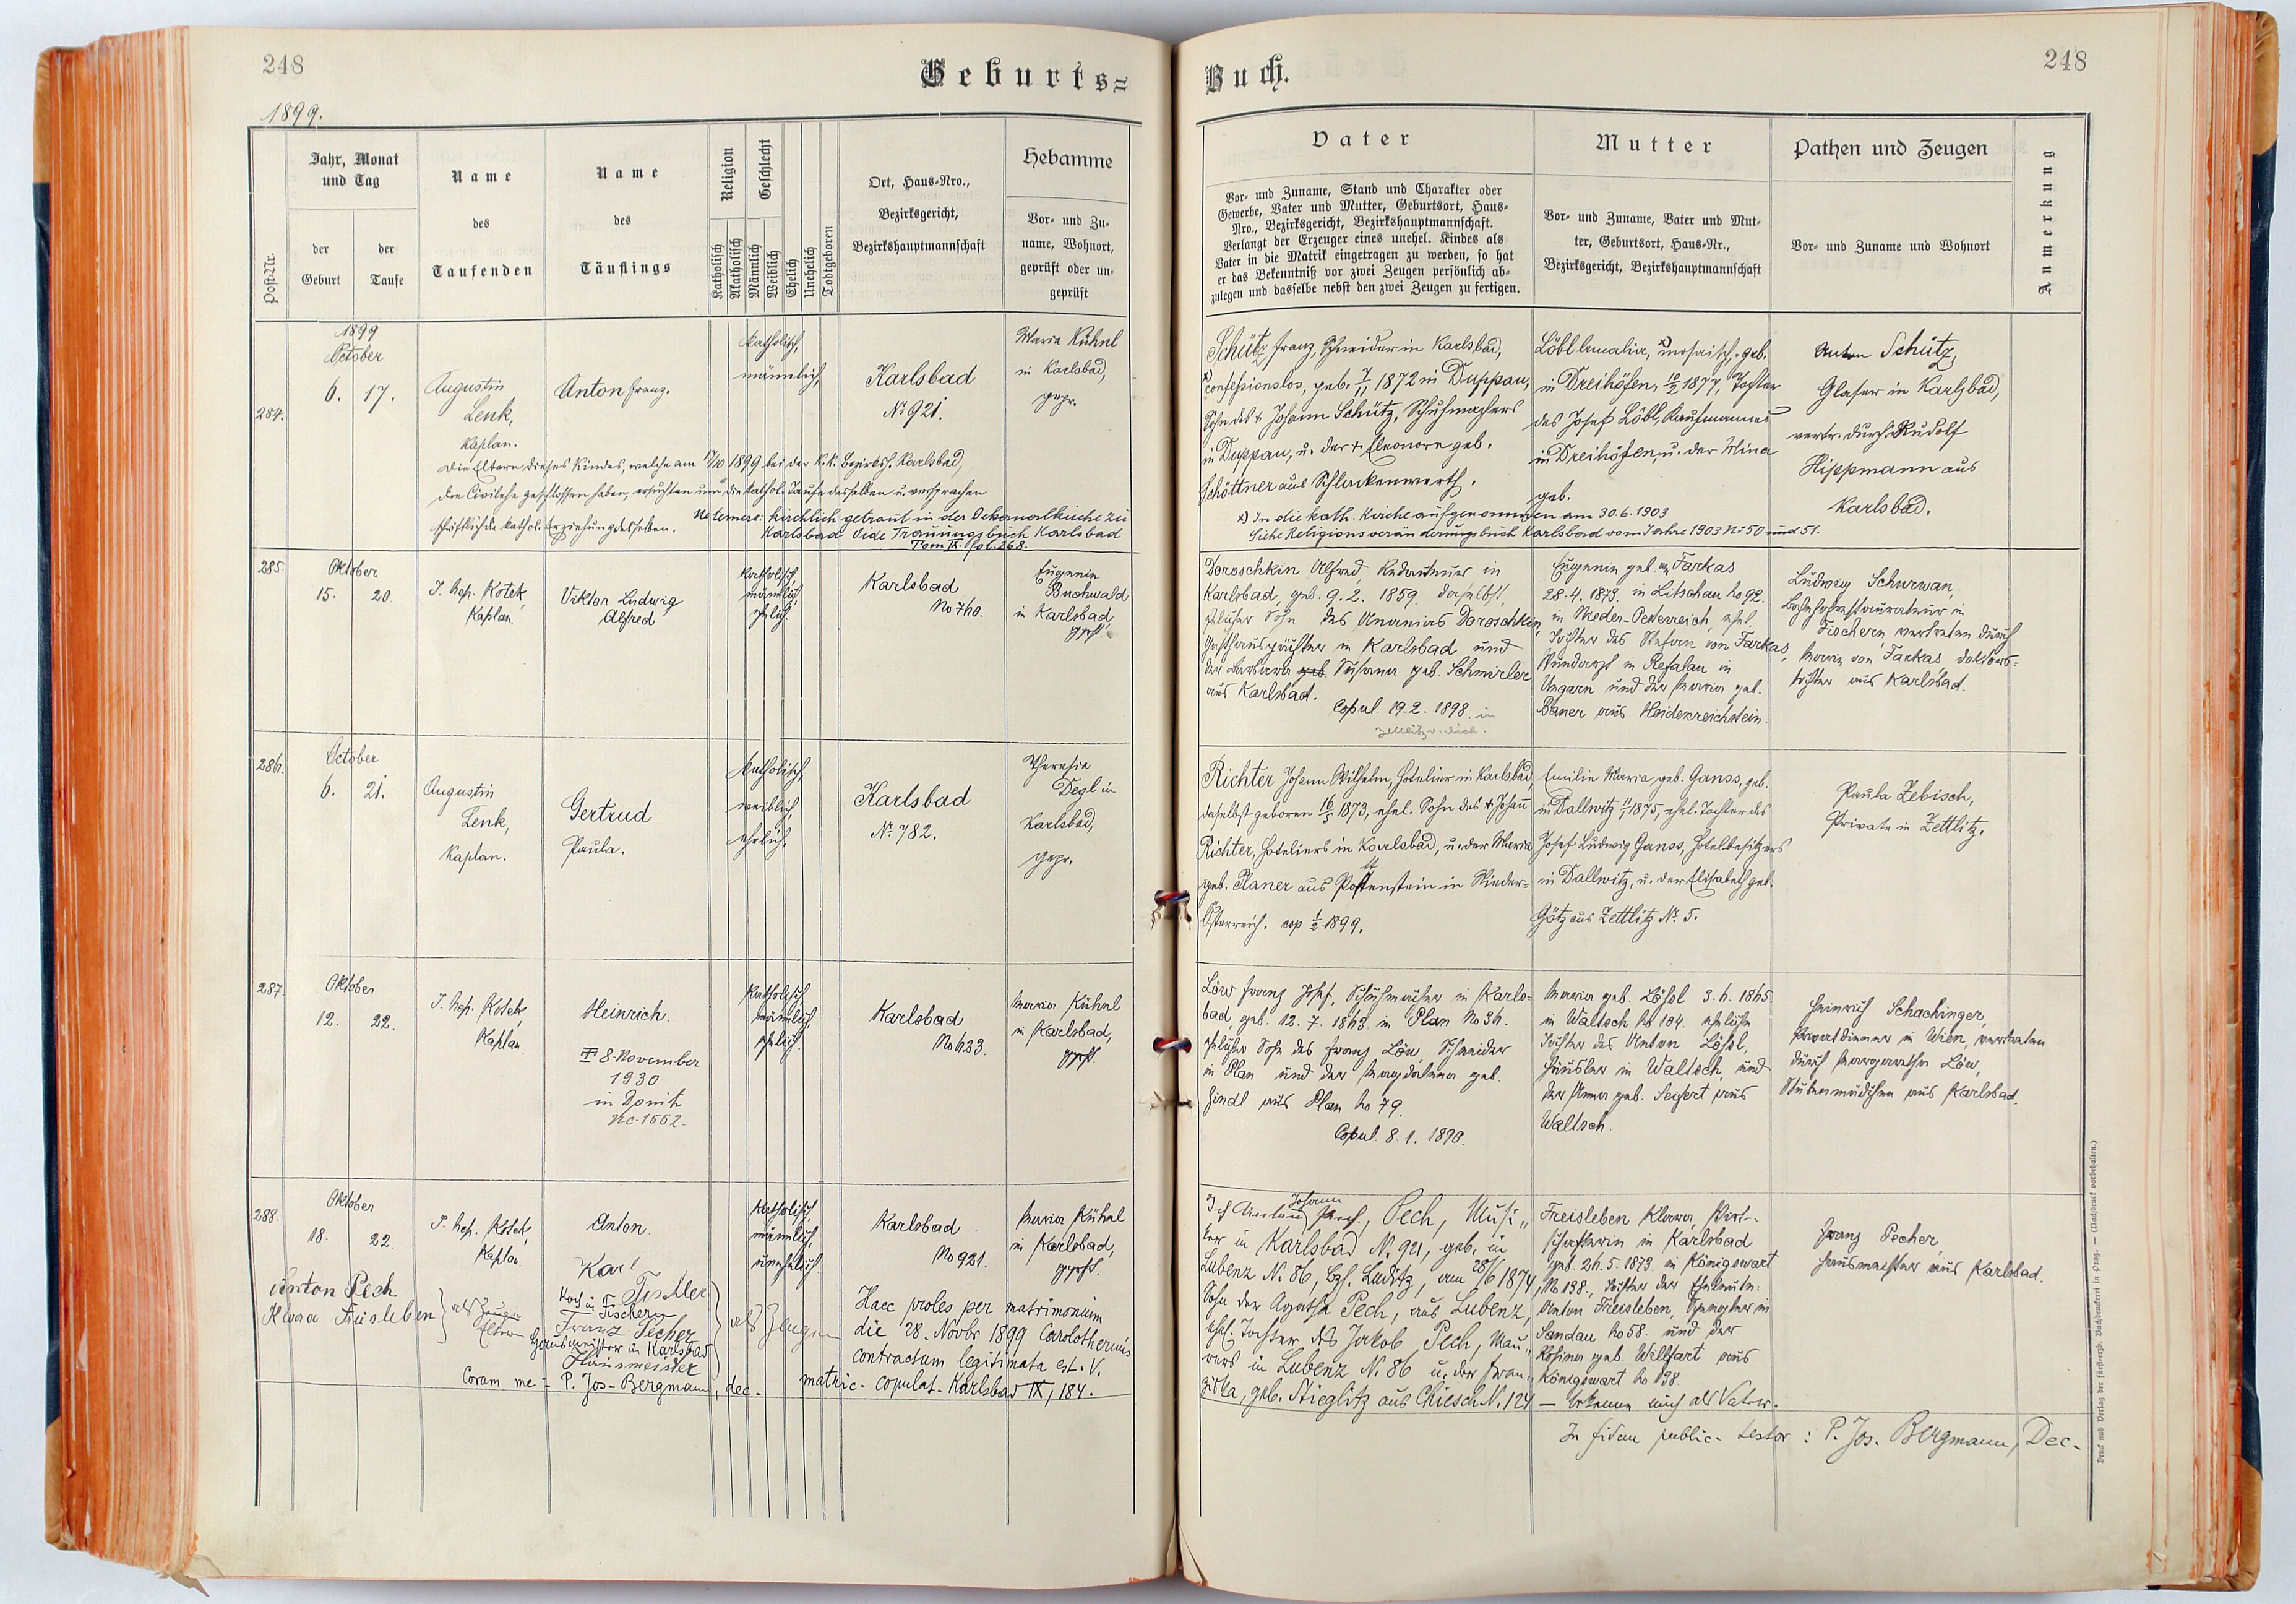 248
Geburts=
1899.
Post-Nr.
Jahr, Monat
und Tag
der
Geburt
der
Taufe
Name
des
Taufenden
Name
des
Täuflings
Religion
Geschlecht
Katholisch
Akatholisch
Männlich
Weiblich
Ehelich
Unehelich
Todtgeboren
Ort, Haus-Nro.,
Bezirksgericht,
Bezirkshauptmannschaft
Hebamme
Vor- und Zu-
name, Wohnort,
geprüft oder un-
geprüft
284.
1899
October
6. 17.
Augustin
Lenk,
Kaplan.
Anton Franz.
katholisch,
männlich,
Karlsbad
No 921.
Maria Kühnl
in Karlsbad,
gepr.
Die Eltern dieses Kindes, welche am 17/10 1899 bei der k.k. Bezirksh. Karlsbad,
die Civilehe geschlossen haben, ersuchten um die kathol. Taufe desselben u. versprachen
schriftlich die kathol. Erziehung desselben.
Notemere: kirchlich getraut in der Dekanalkirche zu
Karlsbad Vide Trauungsbuch Karlsbad
Tom IX. fol. 268.
285.
Oktober
15. 20.
J. Nep. Kotek,
Kaplan
Viktor Ludwig
Alfred
katholisch
männlich
ehelich.
Karlsbad
No 760.
Eugenie
Buchwald
in Karlsbad,
gepft.
286.
October
6. 21.
Augustin
Lenk,
Kaplan.
Gertrud
Paula.
katholisch,
weiblich,
ehelich.
Karlsbad
No 782.
Theresia
Degl in
Karlsbad,
gepr.
287.
Oktober
12. 22.
J. Nep. Kotek,
Kaplan
Heinrich.
8. November
1930
in Donitz
No. 1552.
katholisch
männlich,
ehelich.
Karlsbad
No 623.
Maria Kühnl
in Karlsbad,
gepft.
288.
Oktober
18. 22.
J. Nep. Kotek,
Kaplan.
Anton.
Karl
katholisch
männlich,
unehelich.
Karlsbad
No 921.
Maria Kühnl
in Karlsbad,
gepft.
Anton Pech
Klara Freisleben
als Zeugen
Eltern
Tischler
Koch in Fischern
Franz Pecher
Hausmeister in Karlsbad
Hausmeister
als Zeugen
Haec proles per matrimonium
die 28. Novbr 1899 Carolothermis
contractum legitimata est. V.
matric. copulat. Karlsbad IX, 184.
Coram me: P. Jos. Bergmann, dec.
Buch.
248
Vater
Vor- und Zuname, Stand und Charakter oder
Gewerbe, Vater und Mutter, Geburtsort, Haus-
Nro., Bezirksgericht, Bezirkshauptmannschaft.
Verlangt der Erzeuger eines unehel. Kindes als
Vater in die Matrik eingetragen zu werden, so hat
er das Bekenntniß vor zwei Zeugen persönlich ab-
zulegen und dasselbe nebst den zwei Zeugen zu fertigen.
Mutter
Vor- und Zuname, Vater und Mut-
ter, Geburtsort, Haus-Nr.,
Bezirksgericht, Bezirkshauptmannschaft
Pathen und Zeugen
Vor- und Zuname und Wohnort
Anmerkung
Schütz Franz, Schneider in Karlsbad,
x) confessionslos, geb. 7/11 1872 in Duppau,
Sohn des + Johann Schütz, Schuhmachers
in Duppau, u. der + Eleonora geb.
Schöttner aus Schlackenwerth.
Löbl Amalia, x) mosaisch, geb.
in Dreihöfen, 10/2 1877, Tochter
des Josef Löbl, Kaufmannes
in Dreihöfen, u. der Mina
geb.
Anton Schütz,
Glaser in Karlsbad,
vertr. durch Rudolf
Hippmann aus
Karlsbad.
x) In die kath. Kirche aufgenommen am 30.6.1903
Siehe Religionsveränderungsbuch Karlsbad vom Jahre 1903 No 50 und 51.
Doroschkin Alfred, Redakteur in
Karlsbad, geb. 9. 2. 1859 daselbst,
ehelicher Sohn des Ananias Doroschkin,
Gasthauspächter in Karlsbad und
der Barbara geb. Susanna geb. Schmirler
aus Karlsbad.
Copul. 19. 2. 1898. in
Eugenie geb. v. Farkas
28. 4. 1873. in Litschau No 92.
in Nieder-Oesterreich, ehel.
Tochter des Stefan von Farkas,
Wundarzt in Refalau in
Ungarn und der Maria geb.
Bauer aus Heidenreichstein.
Ludwig Schurwan,
Bahnhofrestaurateur in
Fischern vertreten durch
Maria von Farkas, Doktors-
tochter aus Karlsbad.
Richter Johann Wilhelm, Hotelier in Karlsbad,
daselbst geboren 16/5 1873, ehel. Sohn des + Johann
Richter, Hoteliers in Karlsbad, u. der Maria
geb. Planer aus Pottenstein in Nieder=
Österreich. cop 1/2 1899.
Emilie Maria geb. Ganss, geb.
in Dallwitz 11/1 1875, ehel. Tochter des
Josef Ludwig Ganss, Hotelbesitzers
in Dallwitz, u. der Elisabeth geb.
Götz aus Zettlitz No 5.
Paula Zebisch,
Private in Zettlitz.
Löw Franz Josef, Schuhmacher in Karls=
bad, geb. 12. 7. 1868 in Plan No 36.
ehelicher Sohn des Franz Löw, Schneider
in Plan und der Magdalena geb.
Zindl aus Plan No 79.
Copul. 8. 1. 1890.
Maria geb. Lößl 3. 6. 1865.
in Waltsch No 104. eheliche
Tochter des Anton Lößl,
Häusler in Waltsch und
der Anna geb. Seifert aus
Waltsch.
Heinrich Schachinger,
Privatdiener in Wien, vertreten
durch Margaretha Löw,
Stubenmädchen aus Karlsbad.
Johann
Ich Anton Pech, Musi=
ker in Karlsbad N. 921, geb. in
Lubenz N. 86, Bzh. Luditz, am 28/6 1874,
Sohn der Agatha Pech, aus Lubenz,
ehel. Tochter des Jakob Pech, Mau=
rers in Lubenz N. 86 u. der Fran=
ziska, geb. Stieglitz aus Chiesch N. 124 — bekenne mich als Vater.
Freisleben Klara, Wirt-
schafterin in Karlsbad
geb. 26. 5. 1873. in Königswart
No 138., Tochter der Eheleute:
Anton Freisleben, Spengler in
Sandau No 58. und der
Rosina geb. Willfart aus
Königswart No 138.
Franz Pecher,
Hausmeister aus Karlsbad.
In fidem public. testor: P. Jos. Bergmann, Dec.
Druck und Verlag der fürst-erzb. Buchdruckerei in Prag. — (Nachdruck vorbehalten.)